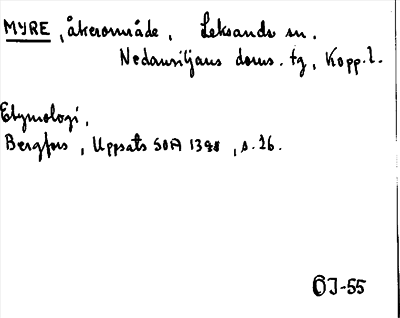 MYRE, åkerområde, Leksands sn.
Nedansiljans doms. tg, Kopp. l.
Etymologi.
Bergfors, Uppsats SOA 1398, s. 26.
ÖJ-55